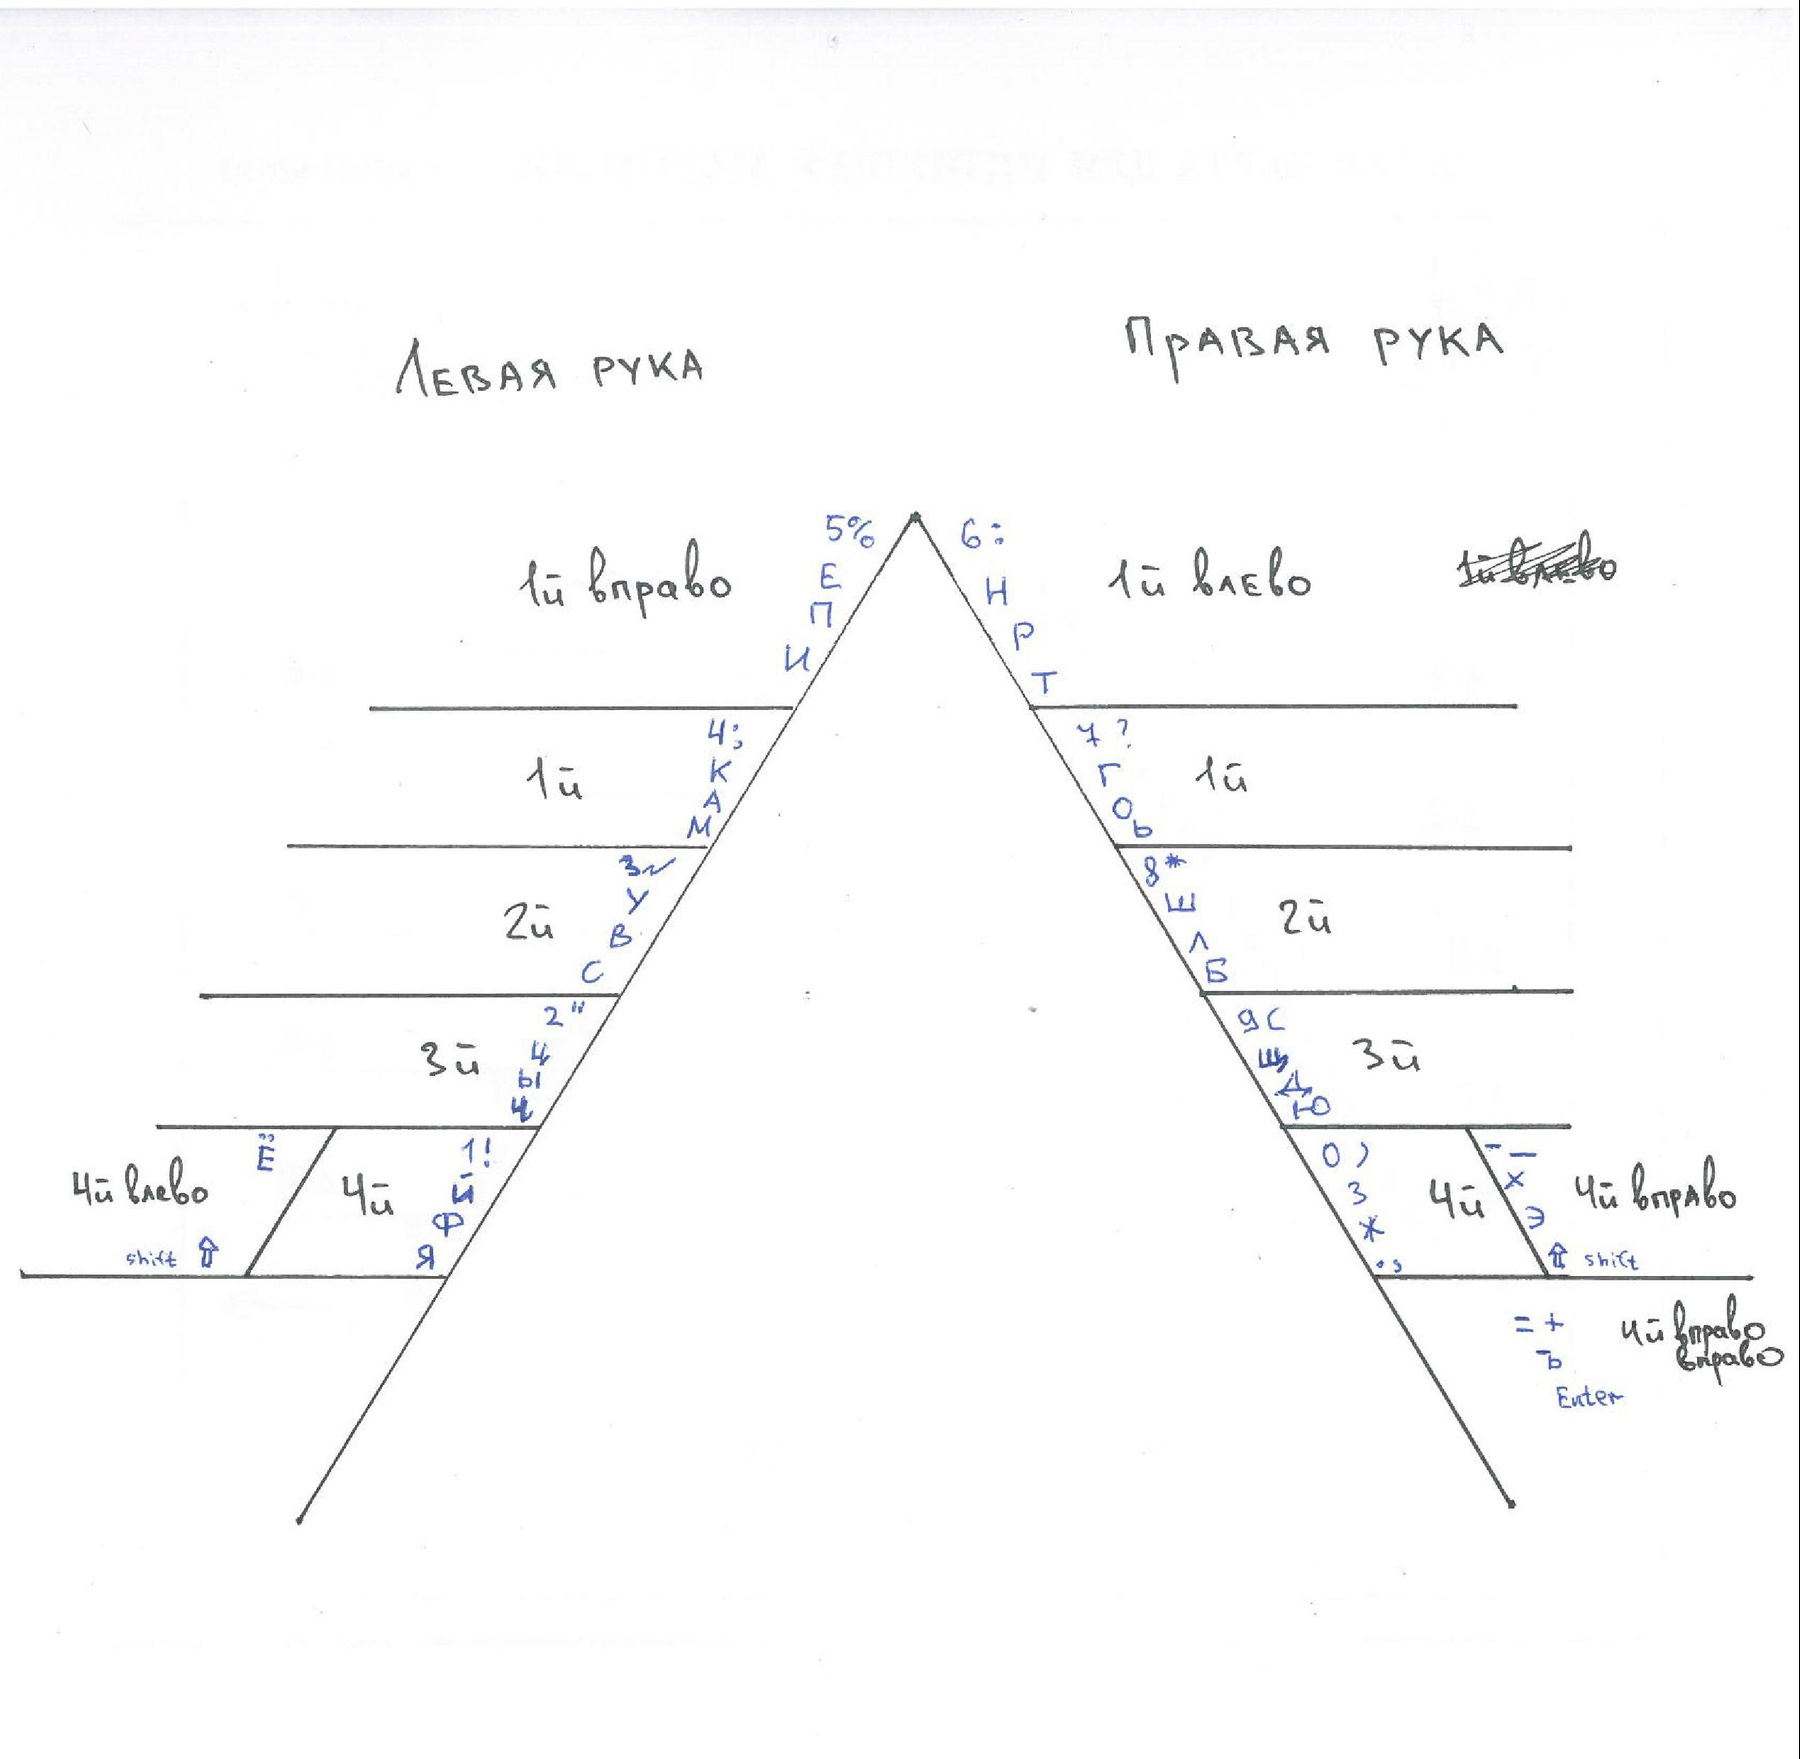 ЛЕВАЯ РУКА
ПРАВАЯ РУКА
5%
Е
П
И
1й вправо
6:
Н
Р
Т
1й влево
4;
К
А
М
1й
7 ?
Г
О
Ь
1й
У
В
С
2й
8*
Ш
Л
Б
2й
2"
Ы
Ч
3й
9 (
Щ
Д
Ю
3й
Ё
4й влево
shift ⇧
1!
Й
Ф
Я
4й
0 )
З
Ж
. ,
4й
- _
Х
Э
⇧ shift
4й вправо
= +
Ъ
Enter
4й вправо
вправо